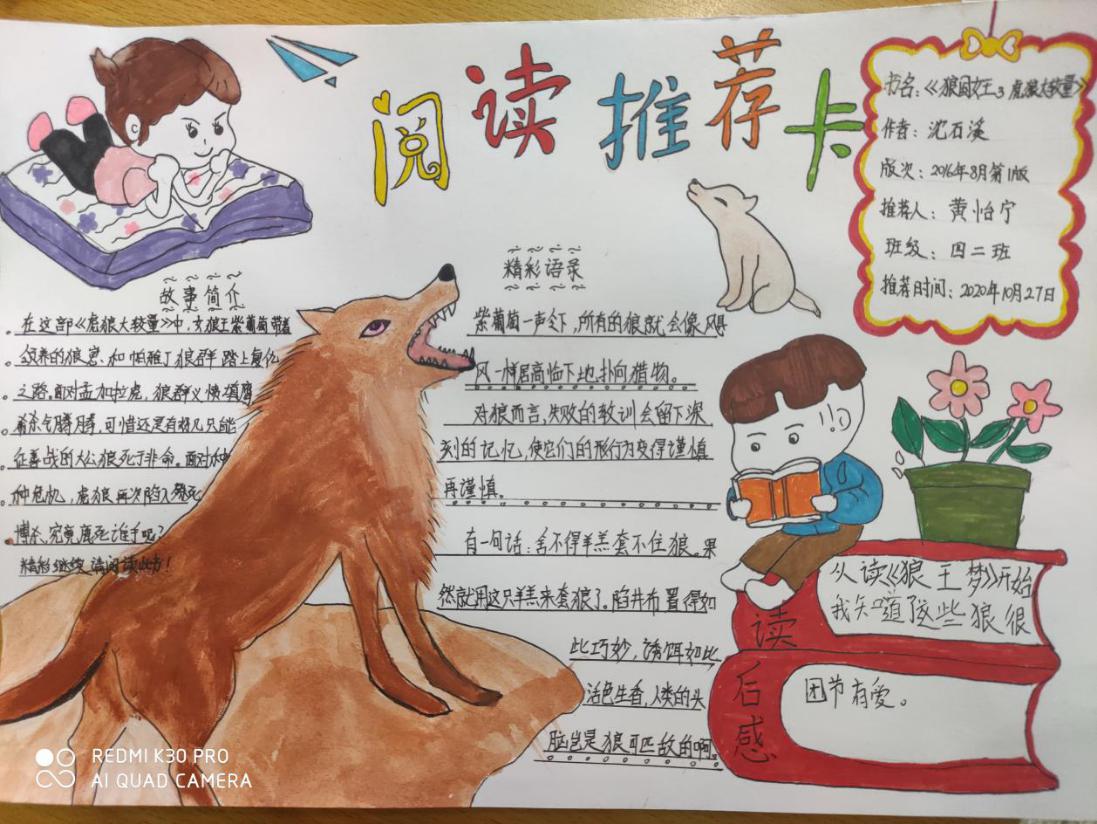 阅读推荐卡
书名:《狼国女王3 虎狼大较量》
作者:沈石溪
版次:2016年8月第1版
推荐人:黄怡宁
班级:四二班
推荐时间:2020年10月27日
故事简介
在这部《虎狼大较量》中,女狼王紫葡萄带着
的狼崽,和帕雅丁狼群踏上复仇
之路。面对孟加拉虎,狼群义愤填膺
杀气腾腾,可惜还是有好几只能
征善战的大公狼死于非命。面对种
种危机,虎狼再次陷入
博杀,究竟鹿死谁手呢?
精彩继续,请阅读此书!
精彩语录
紫葡萄一声令下,所有的狼就会像飓
风一样居高临下地扑向猎物。
对狼而言,失败的教训会留下深
刻的记忆,使它们的形行为变得谨慎
再谨慎。
有一句话:舍不得羊羔套不住狼。果
然就用这只羊羔来套狼了。陷井布置得如
此巧妙,诱饵如此
活色生香,人类的头
脑岂是狼可匹敌的啊。
读后感
从读《狼王梦》开始
我知道这些狼很
团节有爱。
REDMI K30 PRO
AI QUAD CAMERA